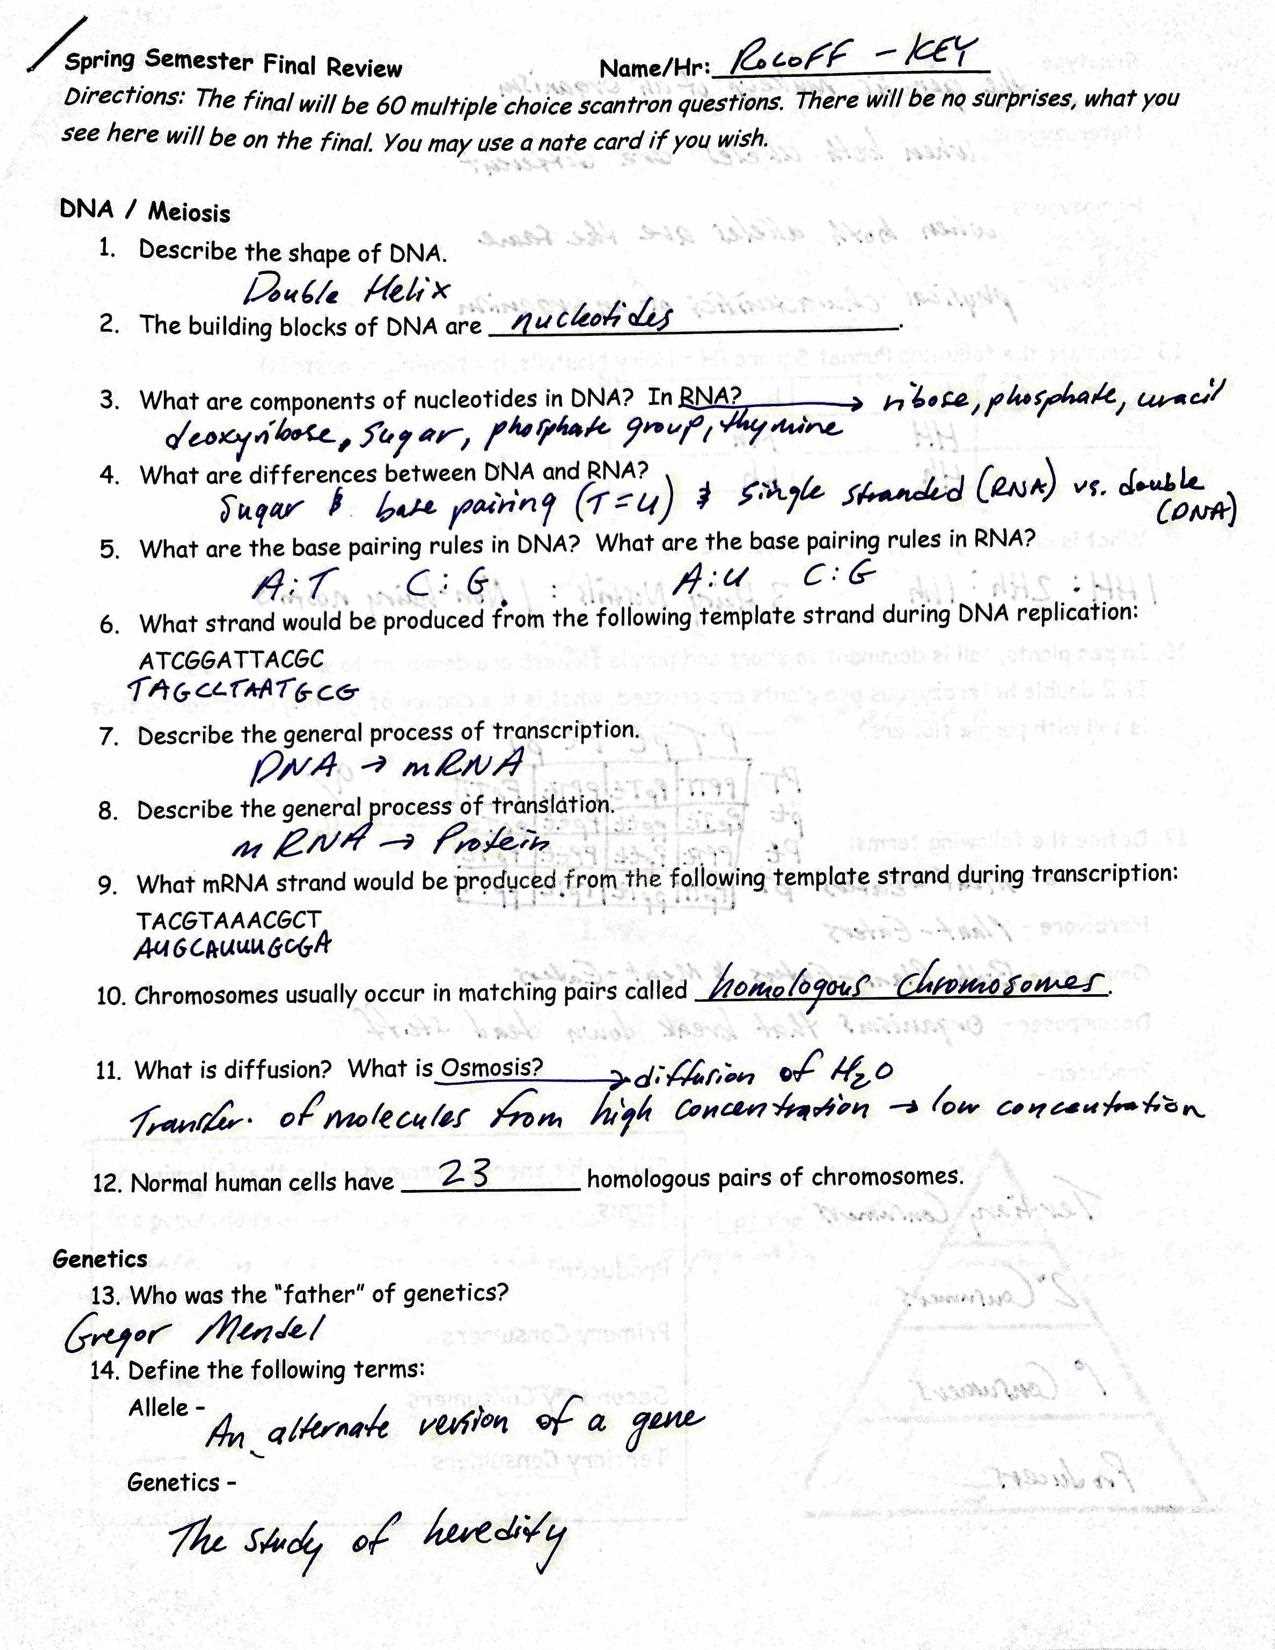 Spring Semester Final Review Name/Hr: ROLOFF - KEY
Directions: The final will be 60 multiple choice scantron questions. There will be no surprises, what you
see here will be on the final. You may use a note card if you wish.
DNA / Meiosis
1. Describe the shape of DNA.
Double Helix
2. The building blocks of DNA are nucleotides.
3. What are components of nucleotides in DNA? In RNA? → ribose, phosphate, uracil
deoxyribose, sugar, phosphate group, thymine
4. What are differences between DNA and RNA?
Sugar & base pairing (T=U) & single stranded (RNA) vs. double
(DNA)
5. What are the base pairing rules in DNA? What are the base pairing rules in RNA?
A:T C:G A:U C:G
6. What strand would be produced from the following template strand during DNA replication:
ATCGGATTACGC
TAGCCTAATGCG
7. Describe the general process of transcription.
DNA → mRNA
8. Describe the general process of translation.
mRNA → Protein
9. What mRNA strand would be produced from the following template strand during transcription:
TACGTAAACGCT
AUGCAUUUGCGA
10. Chromosomes usually occur in matching pairs called homologous chromosomes.
11. What is diffusion? What is Osmosis? → diffusion of H2O
Transfer of molecules from high concentration → low concentration
12. Normal human cells have 23 homologous pairs of chromosomes.
Genetics
13. Who was the "father" of genetics?
Gregor Mendel
14. Define the following terms:
Allele -
An alternate version of a gene
Genetics -
The study of heredity